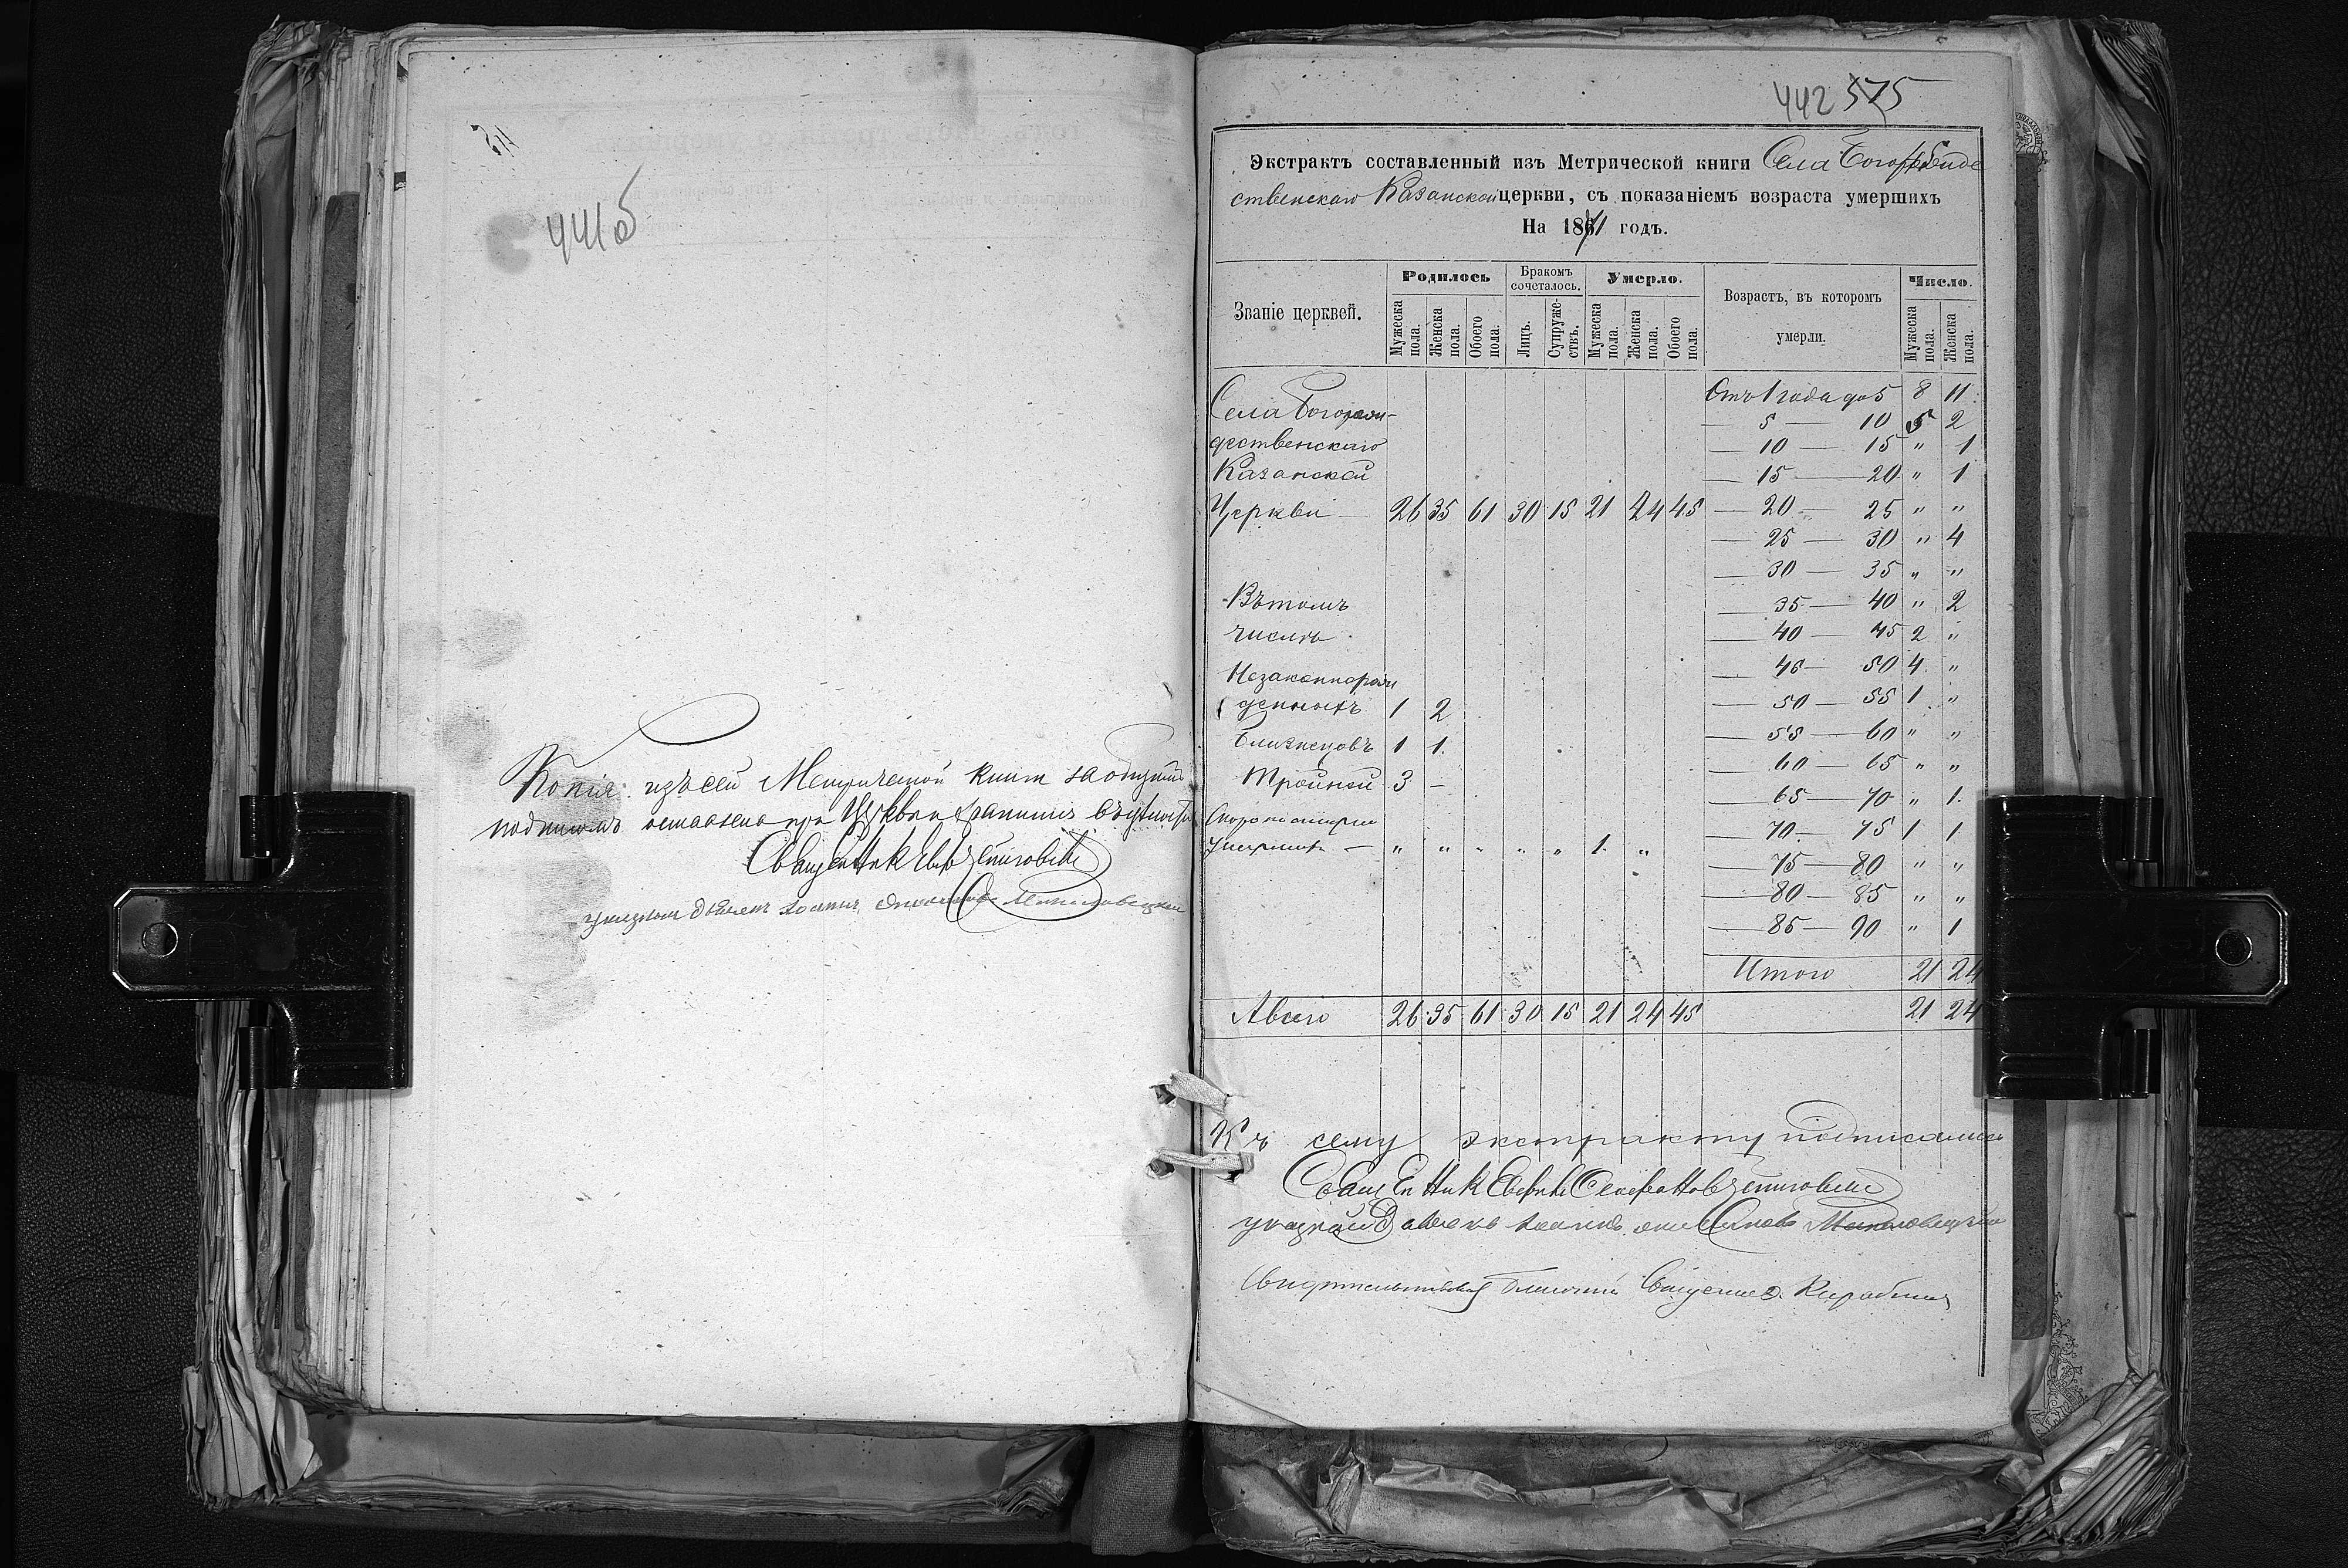 441 об
Копія изъ сей Метрической книги за общимъ
подписомъ оставлена при Церкви и хранится въ
Священник
Указный дьячекъ Іоаннъ
442 575
Экстрактъ составленный изъ Метрической книги Села Богорожде
ственскаго Казанской церкви, съ показаніемъ возраста умершихъ
На 1871 годъ.
Званіе церквей. Родилось Бракомъ сочеталось. Умерло. Возрастъ, въ которомъ умерли. Число.
Мужеска пола. Женска пола. Обоего пола. Лицъ. Супружествъ. Мужеска пола. Женска пола. Обоего пола. Мужеска пола. Женска пола.
Отъ 1 года до 5 8 11
Села Богорож-
— 5 — 10 5 2
дественскаго
— 10 — 15 " 1
Казанской
— 15 — 20 " 1
Церкви — 26 35 61 30 15 21 24 45 — 20 — 25 " "
— 25 — 30 " 4
— 30 — 35 " "
Въ томъ
— 35 — 40 " 2
числѣ
— 40 — 45 2 "
— 45 — 50 4 "
Незаконнорож
денныхъ 1 2
— 50 — 55 1 "
Близнецовъ 1 1
— 55 — 60 " "
— 60 — 65 " "
Тройней 3 —
— 65 — 70 " 1
Скоропостижно
— 70 — 75 1 1
умершихъ — " " " " " 1 "
— 75 — 80 " "
— 80 — 85 " "
— 85 — 90 " 1
Итого 21 24
А всего 26 35 61 30 15 21 24 45 21 24
Къ сему экстракту подписались
Священник
указной Дьячекъ Іоаннъ